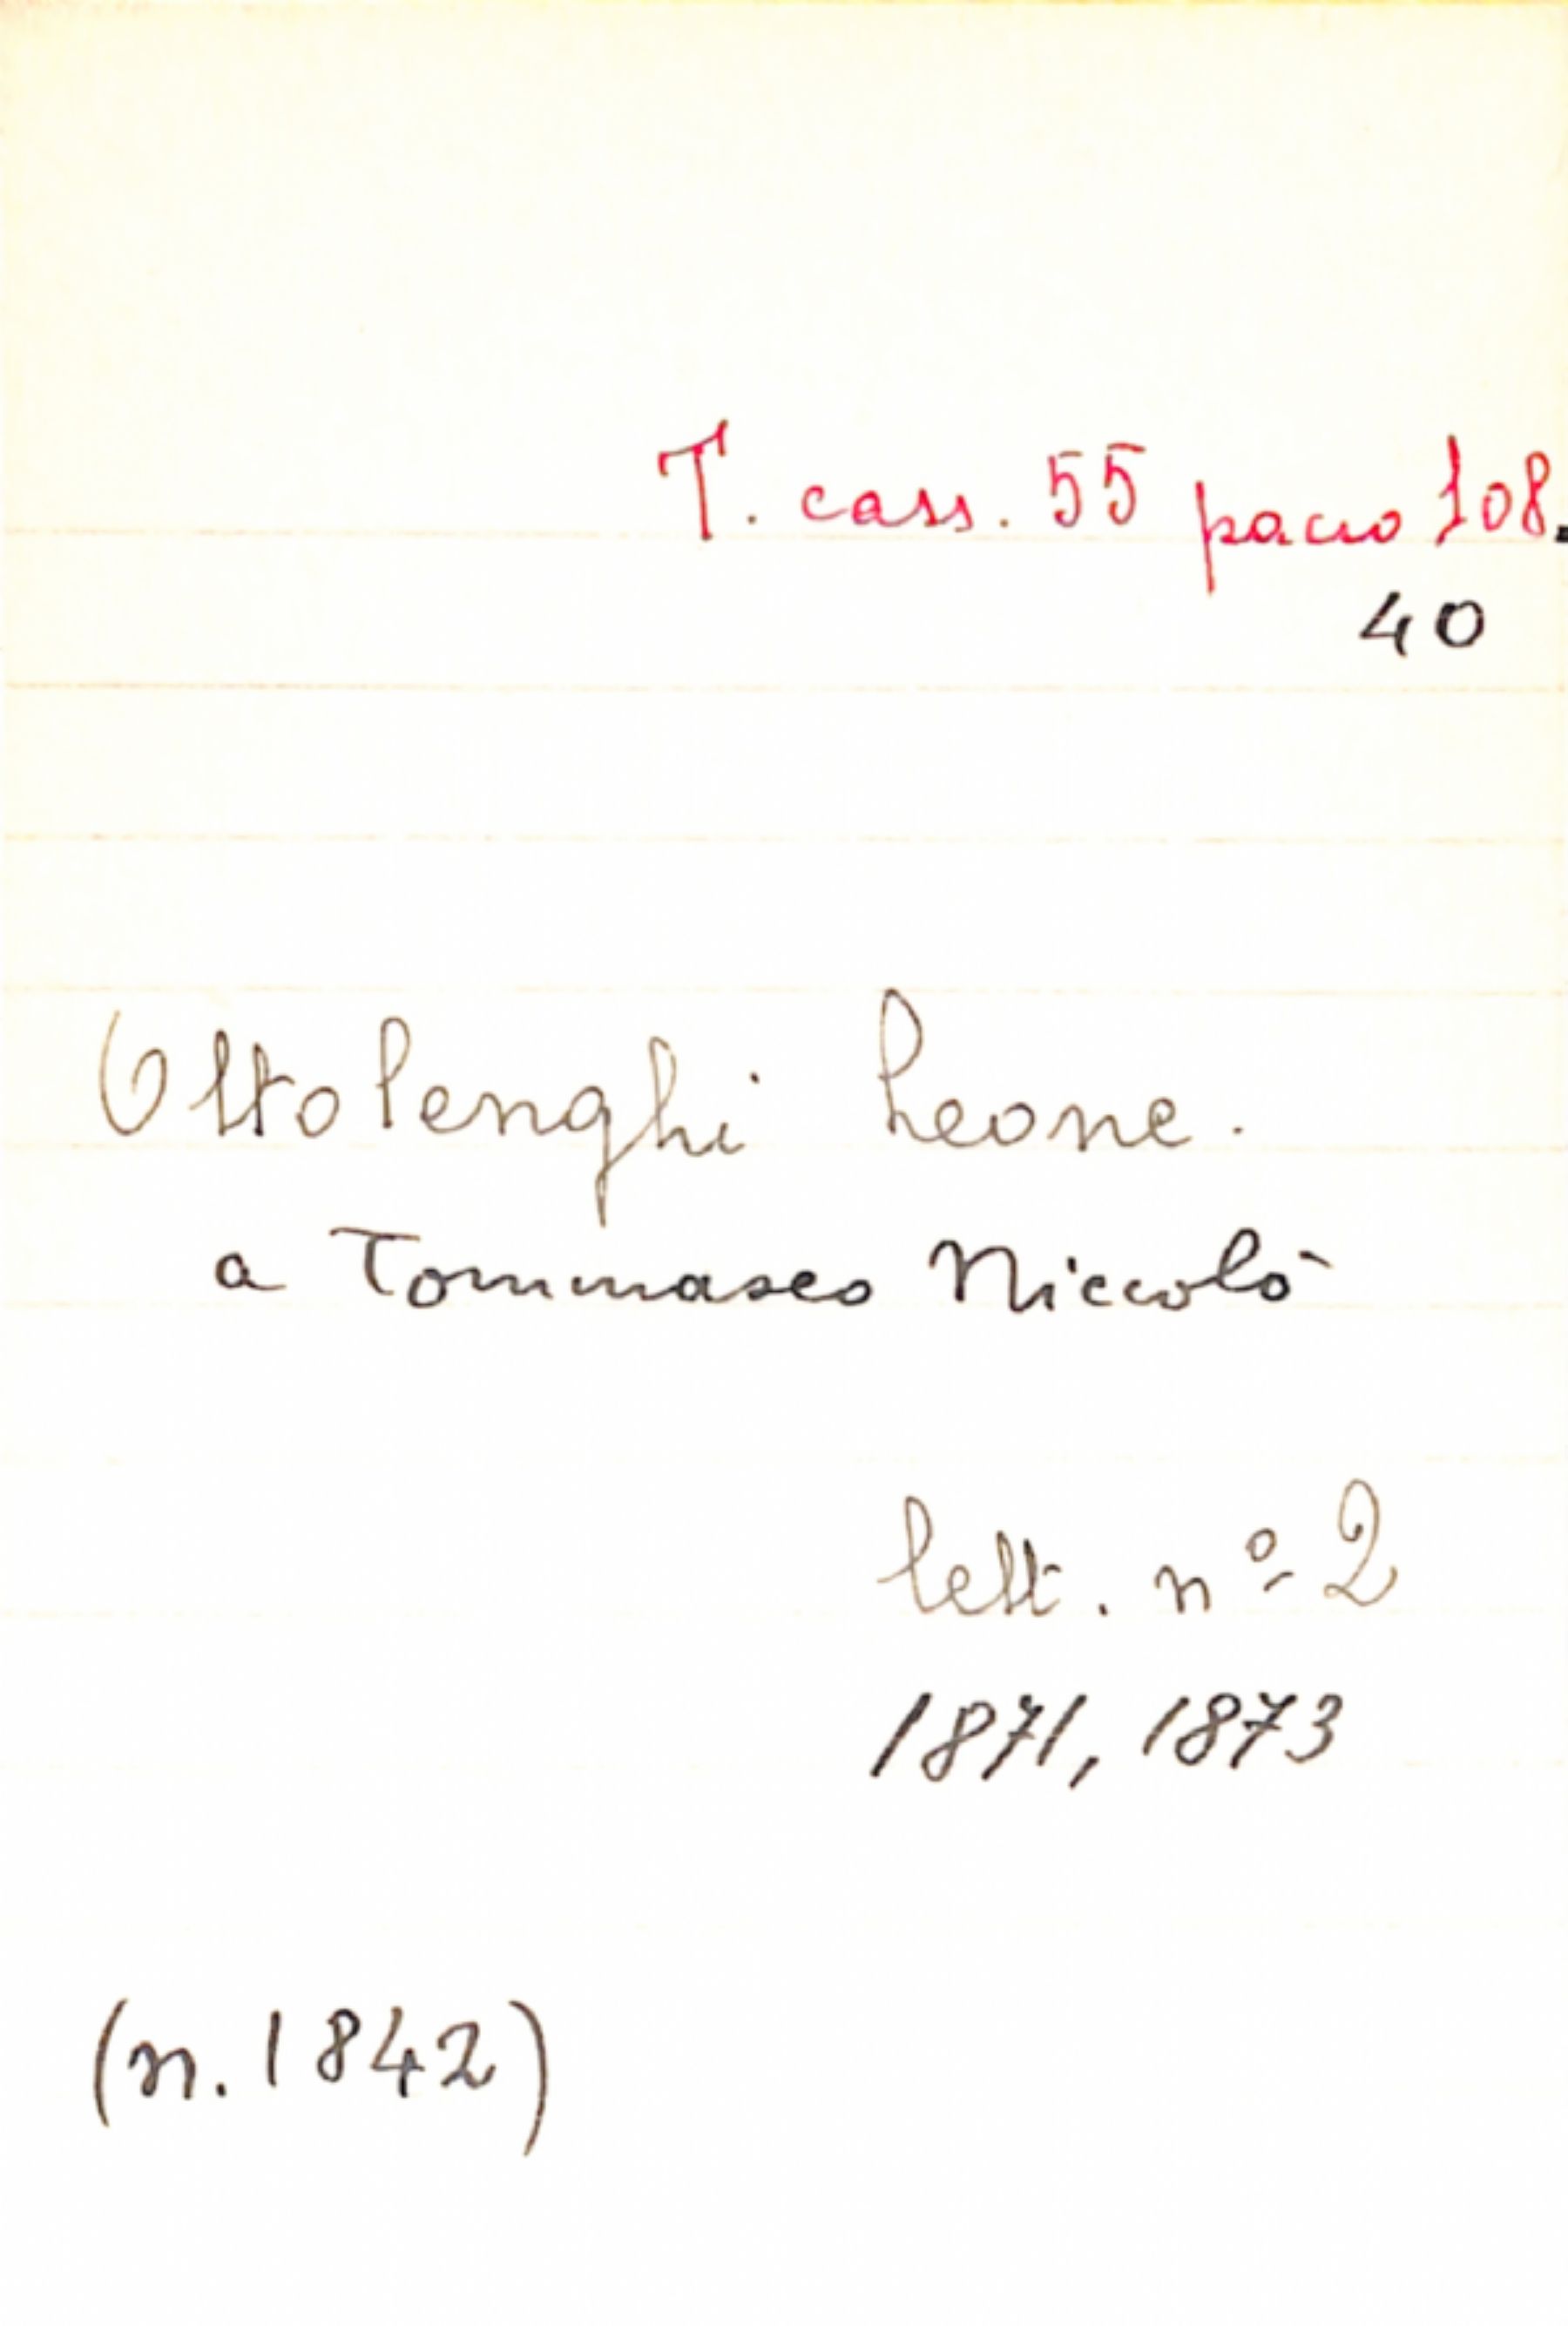 T. cass. 55 pacco 108.
40
Ottolenghi Leone.
a Tommaseo Niccolò
lett. nº 2
1871, 1873
(n. 1842)